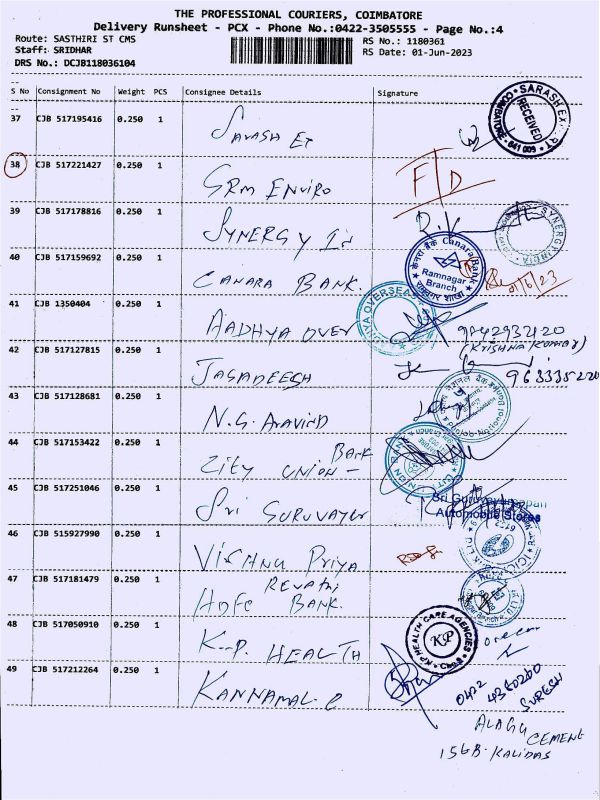 THE PROFESSIONAL COURIERS, COIMBATORE
Delivery Runsheet - PCX - Phone No.:0422-3505555 - Page No.:4
Route: SASTHIRI ST CMS
RS No.: 1180361
Staff: SRIDHAR
RS Date: 01-Jun-2023
DRS No.: DCJB118036104
S No Consignment No Weight PCS Consignee Details Signature
37 CJB 517195416 0.250 1
SARASH EX
COIMBATORE - 641 009
RECEIVED
38 CJB 517221427 0.250 1
SRM ENVIRO F/D
39 CJB 517178816 0.250 1
SYNERGY In R.V
SYNERGY INDIA
40 CJB 517159692 0.250 1
CANARA BANK.
केनरा बैंक Canara Bank
Ramnagar
Branch
रामनगर शाखा
1/6/23
41 CJB 1350404 0.250 1
AADHYA OVER
OVERSEAS
9842932120
(KRISHNA KUMAR)
42 CJB 517127815 0.250 1
JAGADEESH
9633335220
43 CJB 517128681 0.250 1
N.G. ARAVIND
Punjab National
44 CJB 517153422 0.250 1
CITY UNION - BANK
CITY UNION BANK
45 CJB 517251046 0.250 1
Sri GURUVAYUR
Automobile Stores
46 CJB 515927990 0.250 1
VISHNU PRIYA
ICICI BANK LTD
REVATHI
47 CJB 517181479 0.250 1
HDFC BANK.
48 CJB 517050910 0.250 1
K.P. HEALTH
K.P HEALTH CARE AGENCIES
KP
49 CJB 517212264 0.250 1
KANNAMAL-C
0422
4380200
SURESH
ALAGU
CEMENT
156B. KALIDAS